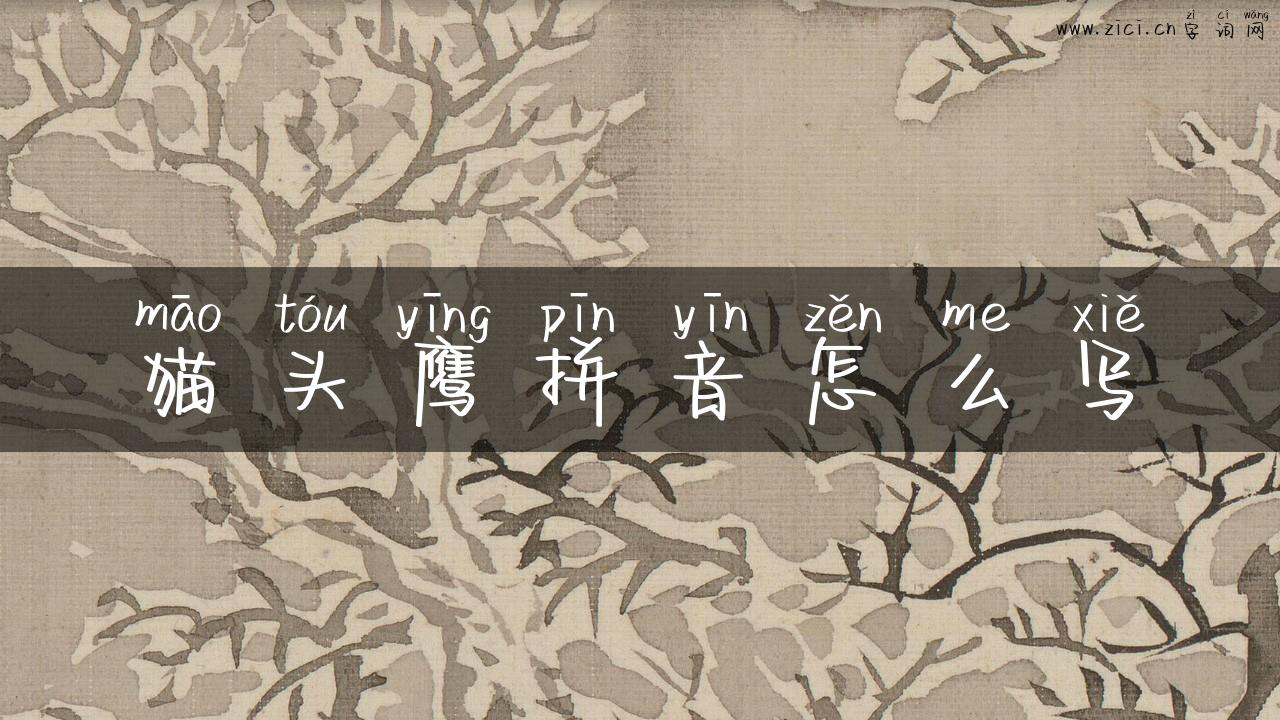 zì cí wǎng
www.zici.cn 字 词 网
māo tóu yīng pīn yīn zěn me xiě
猫 头 鹰 拼 音 怎 么 写